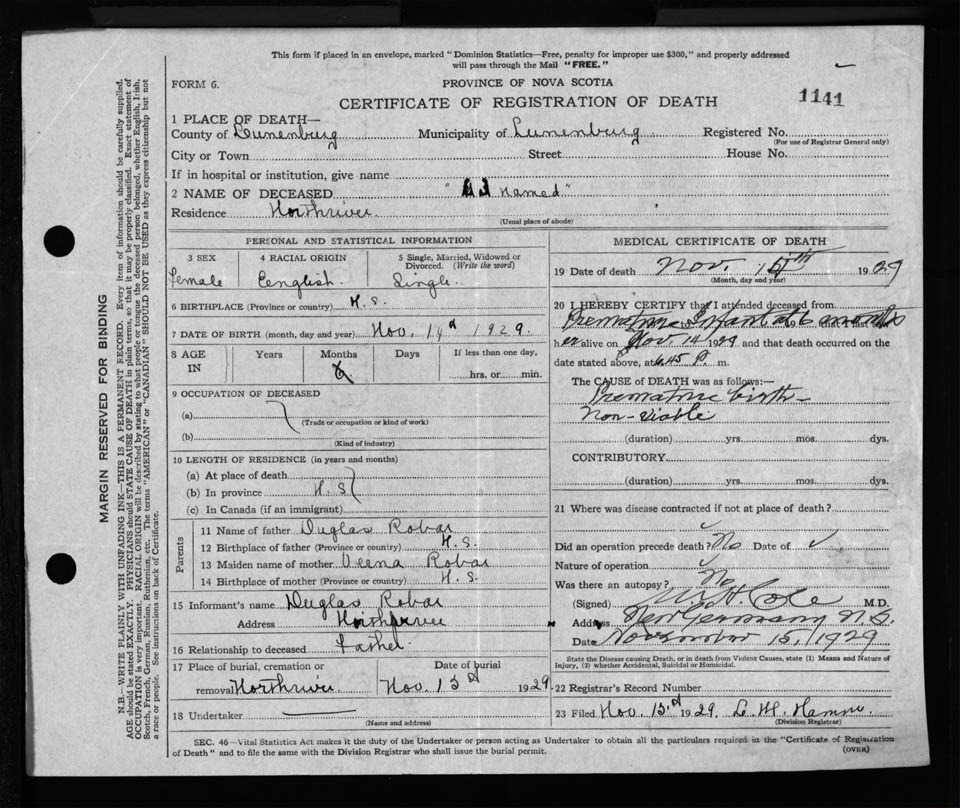 This form if placed in an envelope, marked "Dominion Statistics—Free, penalty for improper use $300," and properly addressed
will pass through the Mail "FREE."
FORM 6.
PROVINCE OF NOVA SCOTIA
CERTIFICATE OF REGISTRATION OF DEATH
1141
1 PLACE OF DEATH—
County of Lunenburg Municipality of Lunenburg Registered No.
(For use of Registrar General only)
City or Town Street House No.
If in hospital or institution, give name
2 NAME OF DECEASED named"
Residence Northriver
(Usual place of abode)
PERSONAL AND STATISTICAL INFORMATION
3 SEX 4 RACIAL ORIGIN 5 Single, Married, Widowed or Divorced. (Write the word)
Female English Single
6 BIRTHPLACE (Province or country) N.S.
7 DATE OF BIRTH (month, day and year) Nov. 14 1929.
8 AGE IN Years Months Days If less than one day,
6 hrs. or min.
9 OCCUPATION OF DECEASED
(a)
(Trade or occupation or kind of work)
(b)
(Kind of industry)
10 LENGTH OF RESIDENCE (in years and months)
(a) At place of death
(b) In province N.S
(c) In Canada (if an immigrant)
Parents
11 Name of father Duglas Robar
12 Birthplace of father (Province or country) N.S.
13 Maiden name of mother Veena Robar
14 Birthplace of mother (Province or country) N.S.
15 Informant's name Duglas Robar
Address Northriver
16 Relationship to deceased Father
17 Place of burial, cremation or removal Northriver
Date of burial
Nov. 15 1929
18 Undertaker
(Name and address)
MEDICAL CERTIFICATE OF DEATH
19 Date of death Nov. 14th 1929
(Month, day and year)
20 I HEREBY CERTIFY that I attended deceased from
Premature Infant at 6 months
her alive on Nov. 14 1929 and that death occurred on the
date stated above, at 6.45 P. m.
The CAUSE of DEATH was as follows:—
Premature birth—
Non-viable
(duration) yrs. mos. dys.
CONTRIBUTORY
(duration) yrs. mos. dys.
21 Where was disease contracted if not at place of death?
Did an operation precede death? No Date of
Nature of operation
Was there an autopsy? No
(Signed) Cole M.D.
Address New Germany N.S.
Date November 15, 1929
State the Disease causing Death, or in death from Violent Causes, state (1) Means and Nature of
Injury, (2) whether Accidental, Suicidal or Homicidal.
22 Registrar's Record Number
23 Filed Nov. 15 1929.
(Division Registrar)
SEC. 46—Vital Statistics Act makes it the duty of the Undertaker or person acting as Undertaker to obtain all the particulars required in the "Certificate of Registration
of Death" and to file the same with the Division Registrar who shall issue the burial permit.
(OVER)
MARGIN RESERVED FOR BINDING
N.B.—WRITE PLAINLY WITH UNFADING INK—THIS IS A PERMANENT RECORD. Every item of information should be carefully supplied.
AGE should be stated EXACTLY. PHYSICIANS should STATE CAUSE OF DEATH in plain terms, so that it may be properly classified. Exact statement of
OCCUPATION is very important. RACIAL ORIGIN will be described by stating to what people or tongue the deceased person belonged, whether English, Irish,
Scotch, French, German, Russian, Ruthenian, etc. The terms "AMERICAN" or "CANADIAN" SHOULD NOT BE USED as they express citizenship but not
a race or people. See instructions on back of Certificate.